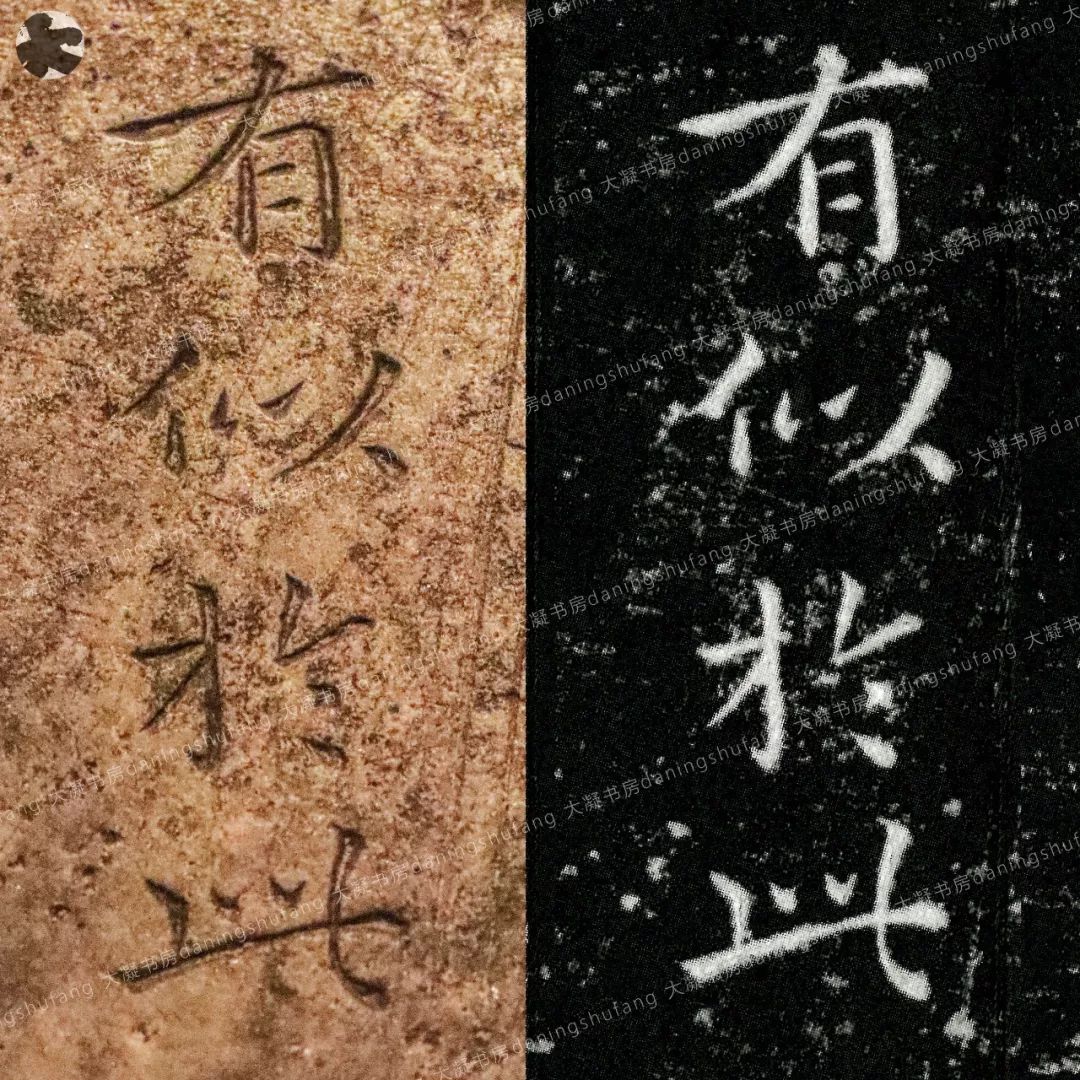 有似於此
有似於此
大凝书房daningshufang